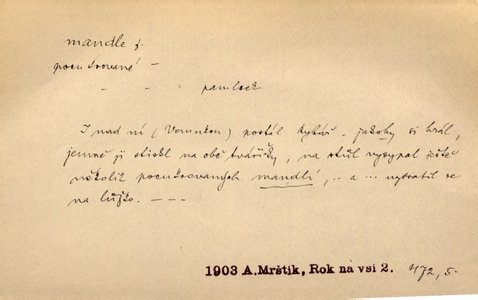 mandle f.
pocukrované —
— — " pamlsek
I nad ní (Verunkou) postál rybář – jakoby si hrál,
jemně jí stiskl na obě tvářičky, na stůl vysypal ještě
několik pocukrovaných mandlí, .. a ... vytratil se
na lůžko. — — —
1903 A.Mrštík, Rok na vsi 2. 472, 5.